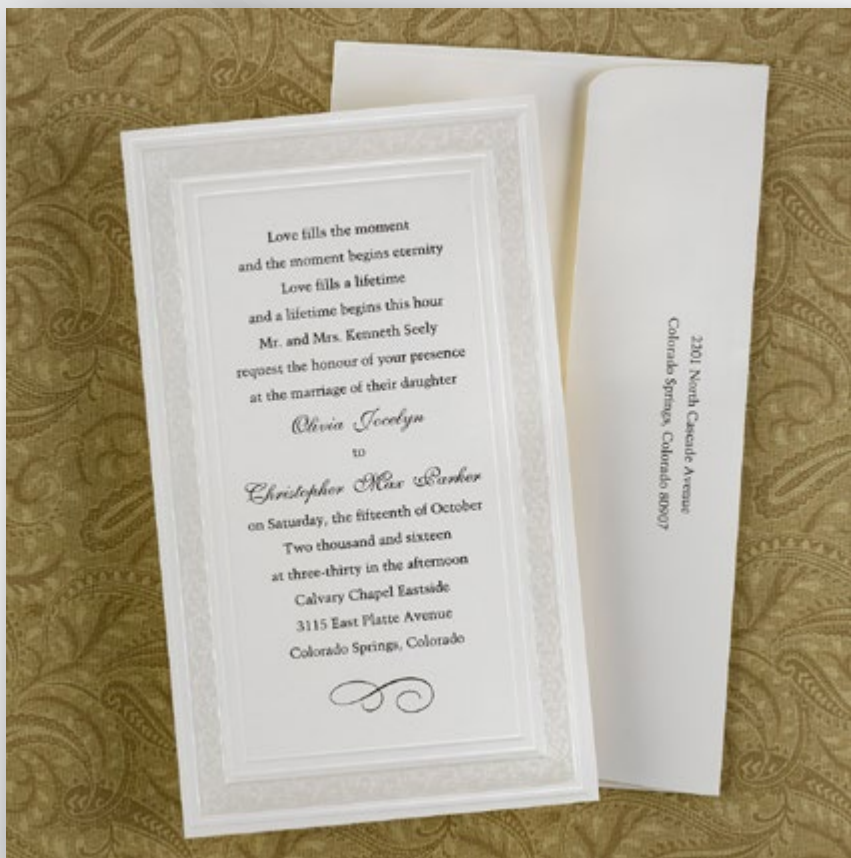 Love fills the moment
and the moment begins eternity
Love fills a lifetime
and a lifetime begins this hour
Mr. and Mrs. Kenneth Seely
request the honour of your presence
at the marriage of their daughter
Olivia Jocelyn
to
Christopher Max Parker
on Saturday, the fifteenth of October
Two thousand and sixteen
at three-thirty in the afternoon
Calvary Chapel Eastside
3115 East Platte Avenue
Colorado Springs, Colorado
2201 North Cascade Avenue
Colorado Springs, Colorado 80907